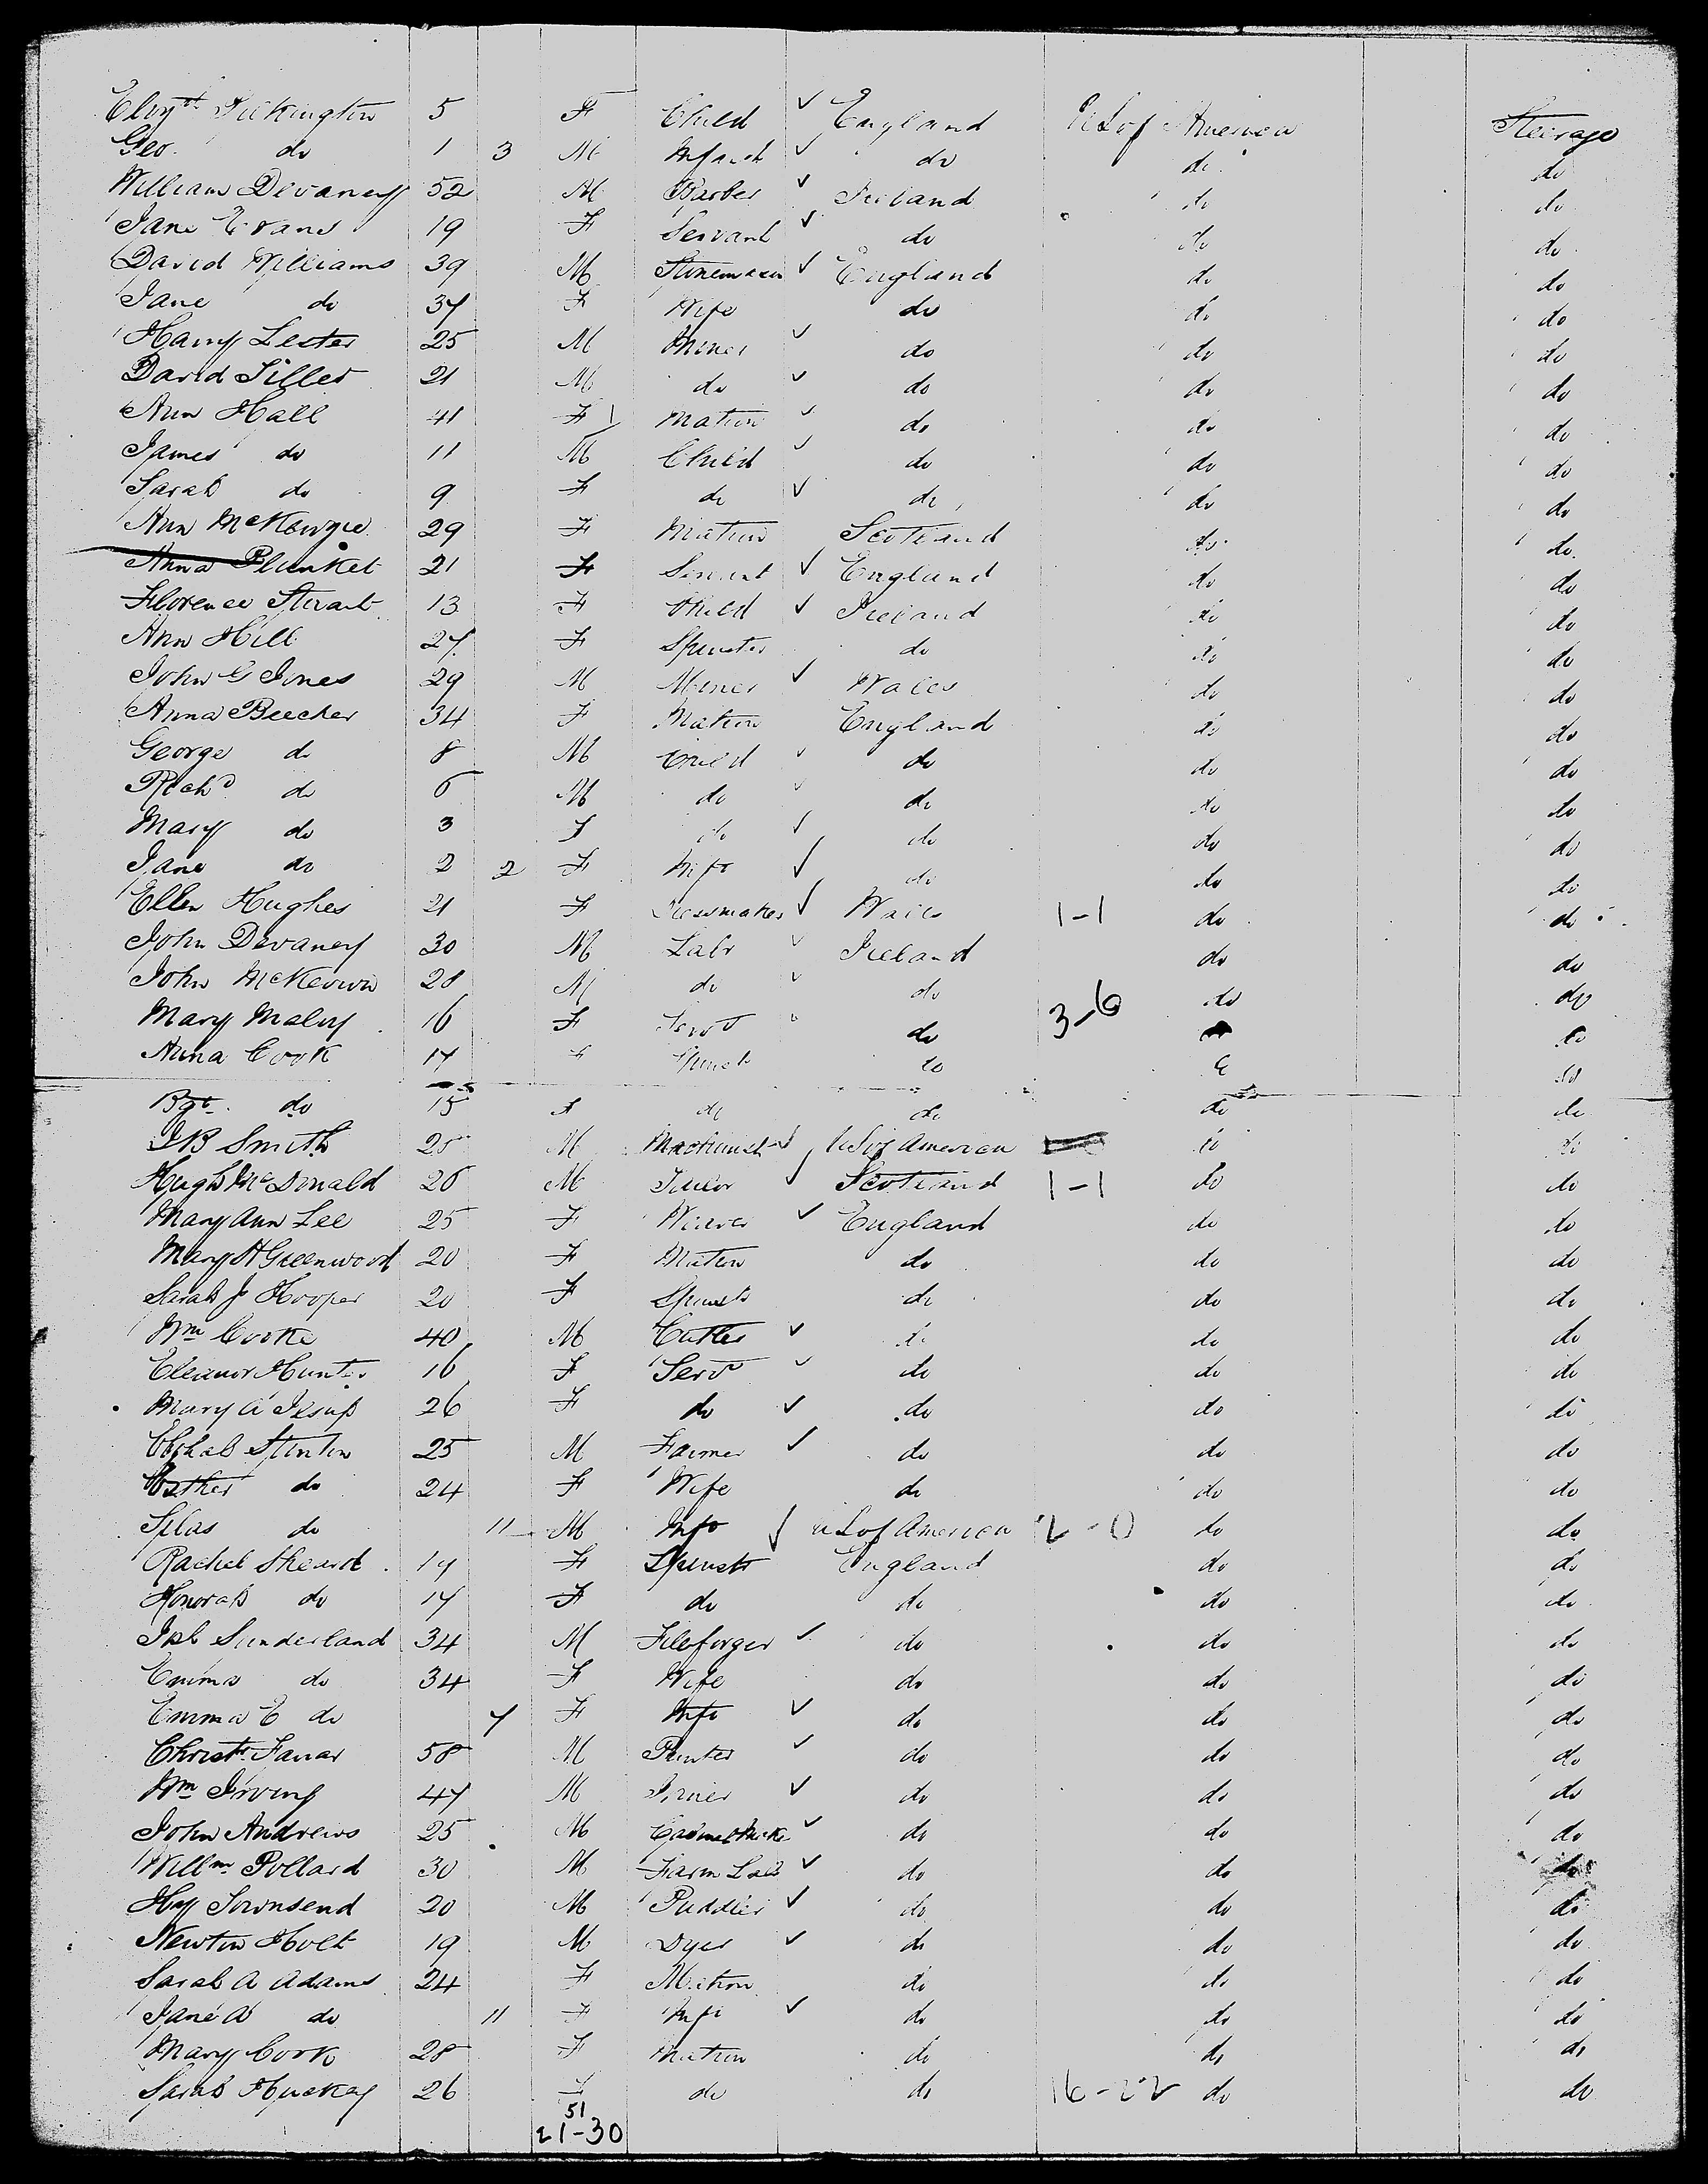 Elizth Pilkington 5 F Child ✓ England U S of America Steerage
Geo. do 1 3 M Infant ✓ do do do
William Devaney 52 M Barber ✓ Ireland do do
Jane Evans 19 F Servant ✓ do do do
David Williams 39 M Stonemason ✓ England do do
Jane do 37 F Wife do do do
Harry Lester 25 M Miner ✓ do do do
David Siller 21 M do ✓ do do do
Ann Hall 41 F Matron ✓ do do do
James do 11 M Child ✓ do do do
Sarah do 9 F do ✓ do do do
Ann McKenzie 29 F Matron Scotland do do
Anna Plunket 21 F Servant ✓ England do do
Florence Stuart 13 F Child ✓ Ireland do do
Ann Hill 27 F Spinster do do do
John G Jones 29 M Miner ✓ Wales do do
Anna Beecher 34 F Matron England do do
George do 8 M Child ✓ do do do
Richd do 6 M do ✓ do do do
Mary do 3 F do ✓ do do do
Jane do 2 2 F Inft ✓ do do do
Ellen Hughes 21 F Dressmaker ✓ Wales 1-1 do do
John Devaney 30 M Labr ✓ Ireland do do
John McKeown 28 M do ✓ do do do
Mary Maley 16 F Servt do 3-6 do
Anna Cook 17 F Spinstr do do
Bgt. do 15 F do do do do
J B Smith 25 M Machinist ✓ U S of America do do
Hugh McDonald 26 M Tailor ✓ Scotland 1-1 do do
Mary Ann Lee 25 F Weaver ✓ England do do
Mary H Greenwood 20 F Matron do do do
Sarah J Hooper 20 F Spinstr do do do
Wm Cooke 40 M Cutler ✓ do do do
Eleanor Hunter 16 F Servt ✓ do do do
Mary A Jesup 26 F do ✓ do do do
Stinton 25 M Farmer ✓ do do do
Esther do 24 F Wife do do do
Silas do 11 M Inft ✓ U S of America 2-0 do do
Rachel Sheard 19 F Spinstr England do do
Honorah do 17 F do do do do
Sunderland 34 M Fileforger ✓ do do do
Emma do 34 F Wife do do do
Emma E do 7 F Inft ✓ do do do
Christr Farrar 58 M Painter ✓ do do do
Wm Irving 47 M Joiner ✓ do do do
John Andrews 25 M Cabinet Maker ✓ do do do
Willm Pollard 30 M Farm Labr ✓ do do do
Hy Townsend 20 M Puddler ✓ do do do
Newton Holt 19 M Dyer ✓ do do do
Sarah A Adams 24 F Matron do do do
Jane A do 11 F Inft ✓ do do do
Mary Cork 28 F Matron do do do
Sarah 26 F do do 16-22 do do
51
21-30